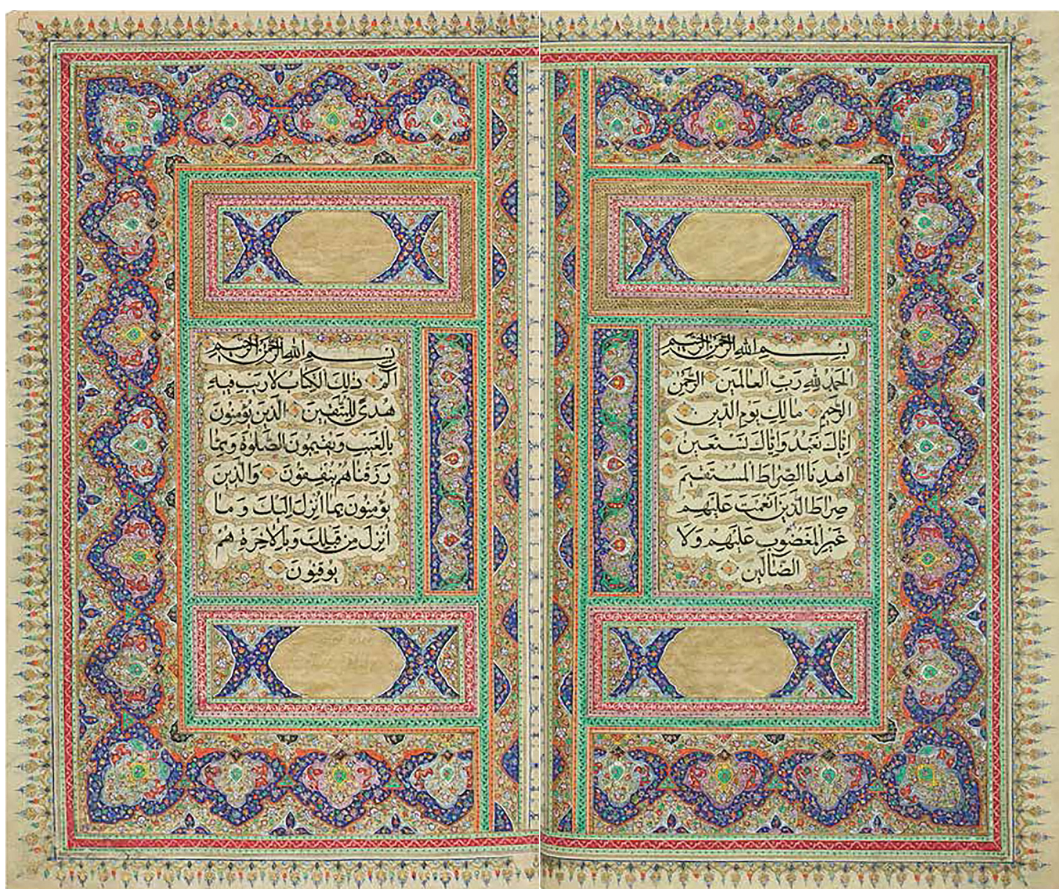 بِسْمِ اللهِ الرَّحْمٰنِ الرَّحِیمِ
اَلْحَمْدُ لِلّٰهِ رَبِّ الْعَالَمِینَ الرَّحْمٰنِ
الرَّحِیمِ مَالِكِ یَوْمِ الدِّینِ
اِیَّاكَ نَعْبُدُ وَاِیَّاكَ نَسْتَعِینُ
اِهْدِنَا الصِّرَاطَ الْمُسْتَقِیمَ
صِرَاطَ الَّذِینَ اَنْعَمْتَ عَلَیْهِمْ
غَیْرِ الْمَغْضُوبِ عَلَیْهِمْ وَلَا
الضَّالِّینَ
بِسْمِ اللهِ الرَّحْمٰنِ الرَّحِیمِ
الٓمٓ ذٰلِكَ الْكِتَابُ لَا رَیْبَ فِیهِ
هُدًی لِلْمُتَّقِینَ اَلَّذِینَ یُؤْمِنُونَ
بِالْغَیْبِ وَیُقِیمُونَ الصَّلٰوةَ وَمِمَّا
رَزَقْنَاهُمْ یُنْفِقُونَ وَالَّذِینَ
یُؤْمِنُونَ بِمَا اُنْزِلَ اِلَیْكَ وَمَا
اُنْزِلَ مِنْ قَبْلِكَ وَبِالْاٰخِرَةِ هُمْ
یُوقِنُونَ